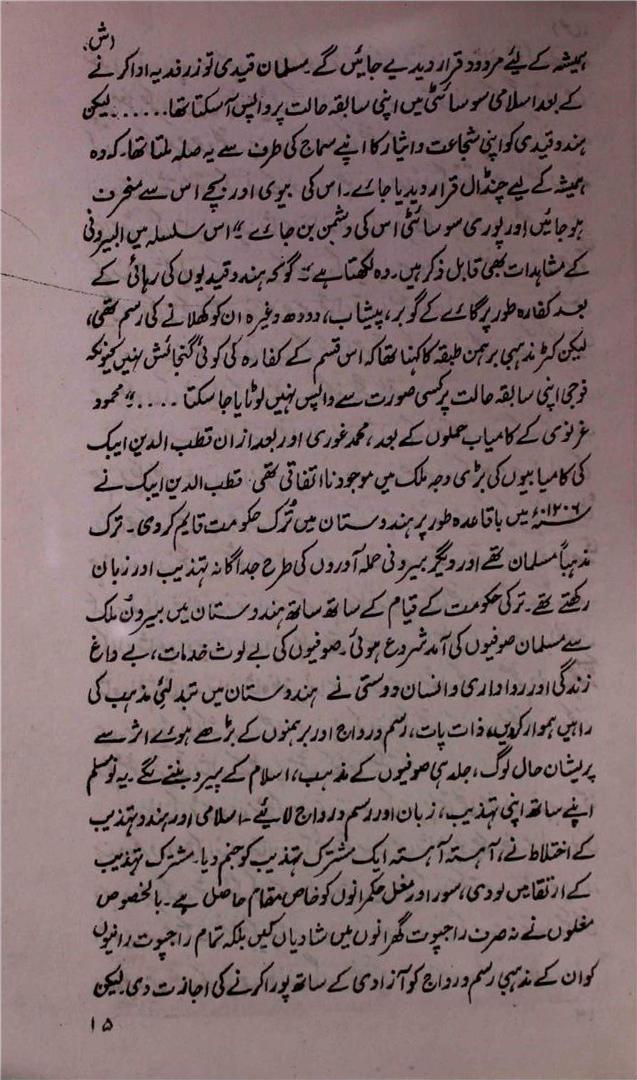 (ش)
ہمیشہ کے لیئے مردود قرار دیدیے جائیں گے۔ مسلمان قیدی تو زر فدیہ ادا کرنے
کے بعد اسلامی سوسائٹی میں اپنی سابقہ حالت پر واپس آسکتا تھا۔ ۔ ۔ ۔ ۔ ۔ لیکن
ہندو قیدی کو اپنی شجاعت و ایثار کا اپنے سماج کی طرف سے یہ صلہ ملتا تھا۔ کہ وہ
ہمیشہ کے لیے چنڈال قرار دیدیا جائے۔ اس کی بیوی اور بچے اس سے منحرف
ہو جائیں اور پوری سوسائٹی اس کی دشمن بن جائے "اس سلسلہ میں البیرونی
کے مشاہدات بھی قابل ذکر ہیں۔ وہ لکھتا ہے "گو کہ ہندو قیدیوں کی رہائی کے
بعد کفارہ طور پر گائے کے گوبر، پیشاب، دودھ وغیرہ ان کو کھلانے کی رسم تھی،
لیکن کٹر مذہبی برہمن طبقہ کا کہنا تھا کہ اس قسم کے کفارہ کی کوئی گنجائش نہیں کیونکہ
فوجی اپنی سابقہ حالت پر کسی صورت سے واپس نہیں لوٹایا جا سکتا ۔ ۔ ۔ ۔" محمود
غزنوی کے کامیاب حملوں کے بعد، محمد غوری اور بعد ازاں قطب الدین ایبک
کی کامیابیوں کی بڑی وجہ ملک میں موجود نا اتفاقی تھی۔ قطب الدین ایبک نے
سنہ ۱۲۰۶ء میں باقاعدہ طور پر ہندوستان میں تُرک حکومت قایم کر دی۔ ترک
مذہباً مسلمان تھے اور دیگر بیرونی حملہ آوروں کی طرح جداگانہ تہذیب اور زبان
رکھتے تھے۔ ترکی حکومت کے قیام کے ساتھ ساتھ ہندوستان میں بیرون ملک
سے مسلمان صوفیوں کی آمد شروع ہوئی۔ صوفیوں کی بے لوث خدمات، بے داغ
زندگی اور رواداری و انسان دوستی نے ہندوستان میں تبدلیٔ مذہب کی
راہیں ہموار کر دیں، ذات پات، رسم و رواج اور برہمنوں کے بڑھے ہوئے اثر سے
پریشان حال لوگ، جلد ہی صوفیوں کے مذہب، اسلام کے پیرو بننے لگے۔ یہ نو مسلم
اپنے ساتھ اپنی تہذیب، زبان اور رسم و رواج لائے۔ اسلامی اور ہندو تہذیب
کے اختلاط نے، آہستہ آہستہ ایک مشترک تہذیب کو جنم دیا۔ مشترک تہذیب
کے ارتقا میں لودی، سور اور مغل حکمرانوں کو خاص مقام حاصل ہے۔ بالخصوص
مغلوں نے نہ صرف راجپوت گھرانوں میں شادیاں کیں بلکہ تمام راجپوت رانیوں
کو ان کے مذہبی رسم و رواج کو آزادی کے ساتھ پورا کرنے کی اجازت دی۔ لیکن
۱۵